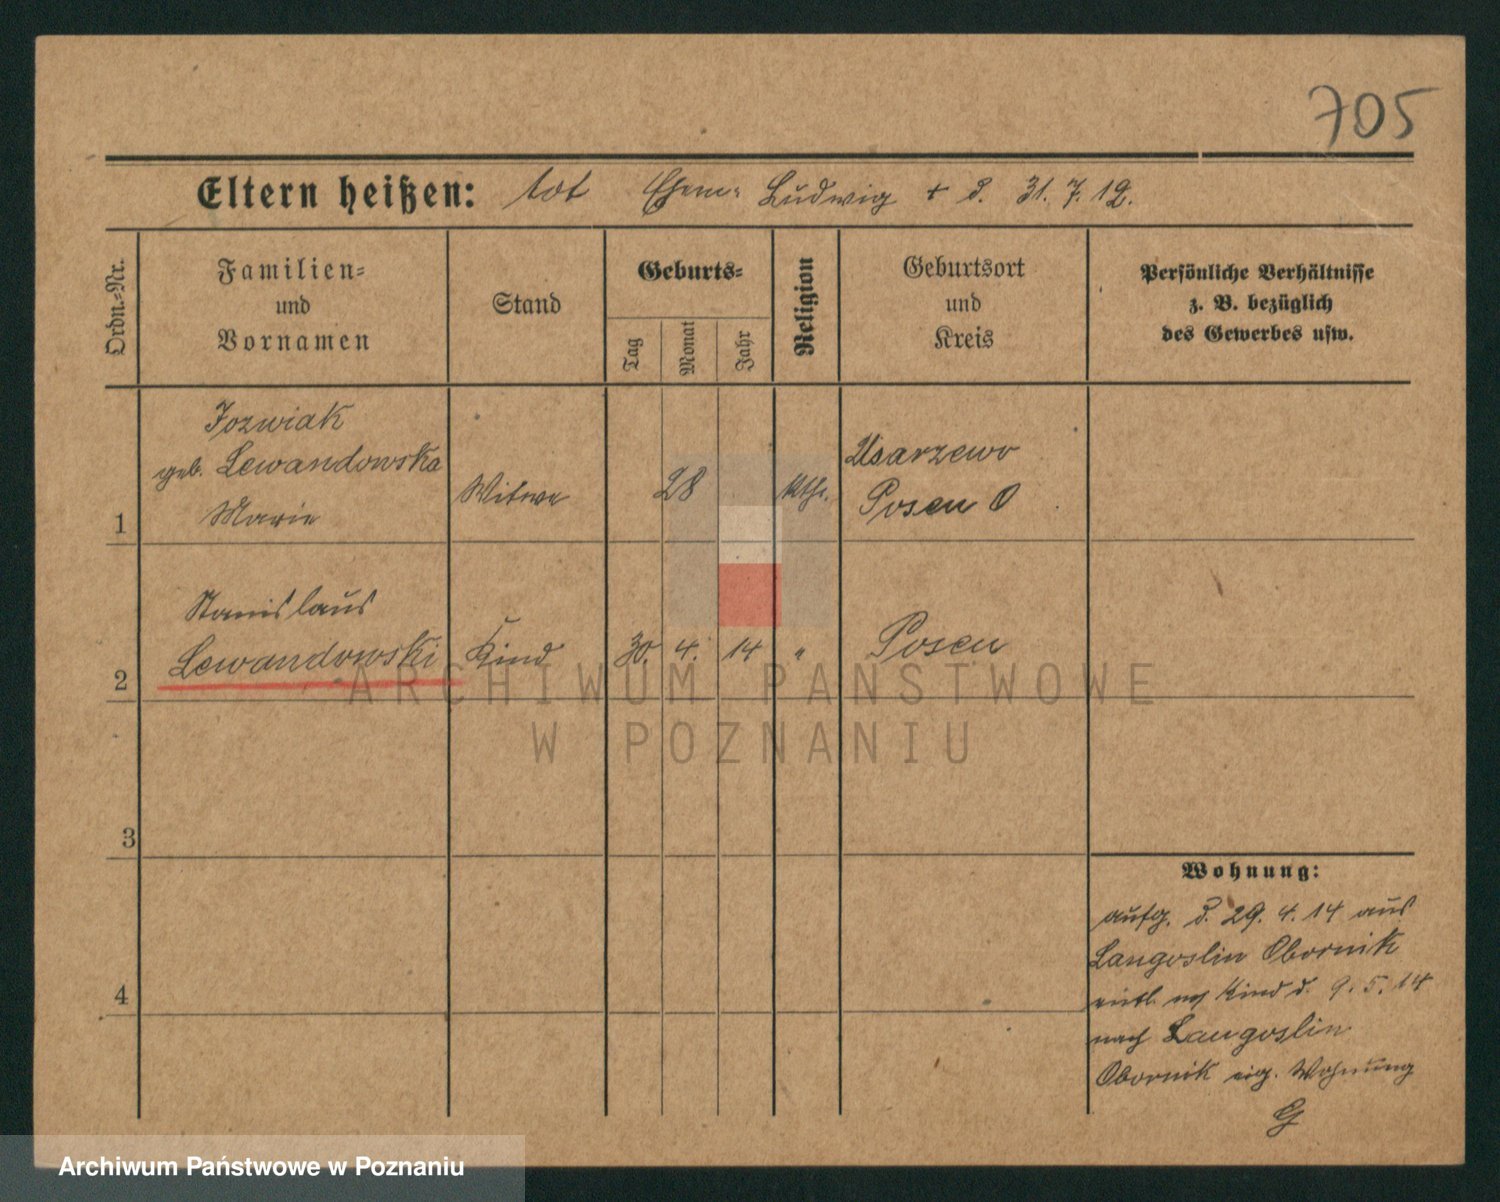 705
Eltern heißen: tot Ehem: Ludwig + d. 31. 7. 12.
Ordn.=Nr.
Familien=
und
Vornamen
Stand
Geburts=
Tag
Monat
Jahr
Religion
Geburtsort
und
Kreis
Persönliche Verhältnisse
z. B. bezüglich
des Gewerbes usw.
Jozwiak
geb. Lewandowska
Marie
1
Witwe
28
kth.
Usarzewo
Posen O
Stanislaus
Lewandowski
2
Kind
30. 4. 14
"
Posen
ARCHIWUM PAŃSTWOWE
W POZNANIU
3
4
Wohnung:
aufg. d. 29. 4. 14 aus
Langoslin Obornik
entl. Kind d. 9. 5. 14
nach Langoslin
Obornik eig. Wohnung
G
Archiwum Państwowe w Poznaniu